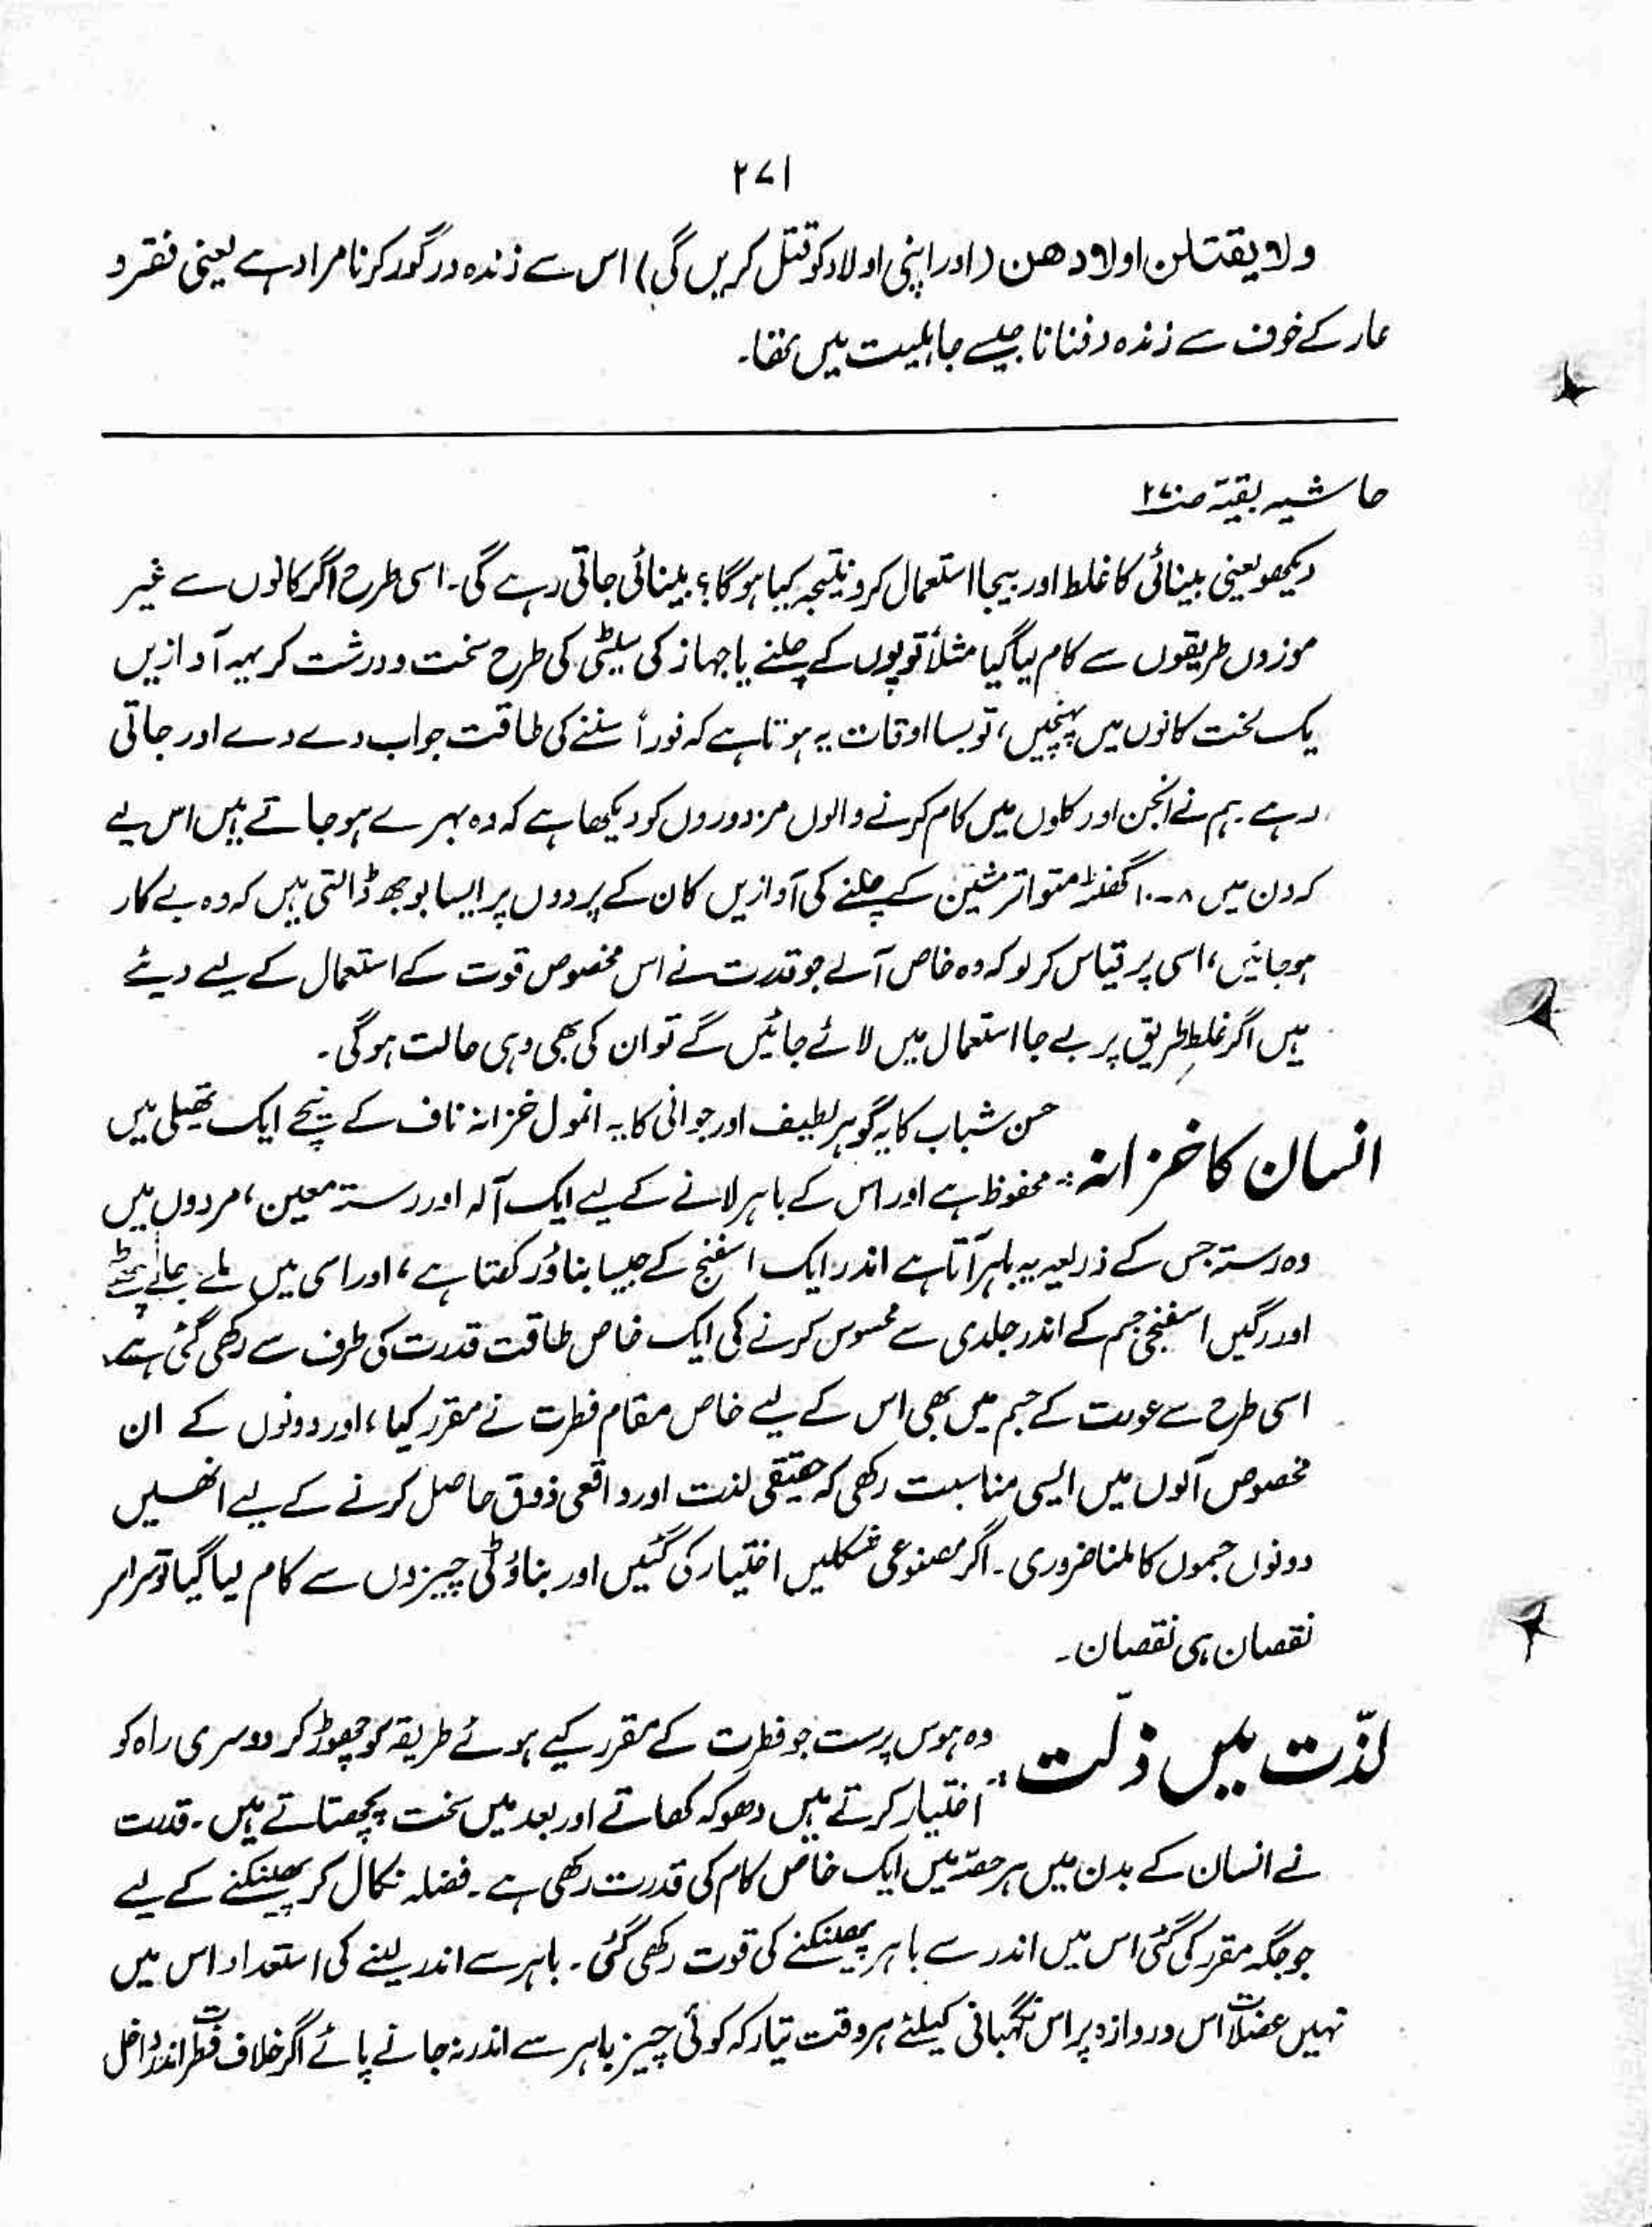 ۲۷۱
ولا یقتلن اولادھن (اور اپنی اولاد کو قتل کریں گی) اس سے زندہ درگور کرنا مراد ہے یعنی فقر و
عار کے خوف سے زندہ دفنانا جیسے جاہلیت میں تھا۔
حاشیہ بقیہ صفحہ ۲۷۰
دیکھو یعنی بینائی کا غلط اور بیجا استعمال کرو نتیجہ کیا ہو گا؟ بینائی جاتی رہے گی۔ اسی طرح اگر کانوں سے غیر
موزوں طریقوں سے کام لیا گیا مثلاً توپوں کے چلنے یا جہاز کی سیٹی کی طرح سخت و درشت کریہہ آوازیں
یک لخت کانوں میں پہنچیں، تو بسا اوقات یہ ہوتا ہے کہ فوراً سننے کی طاقت جواب دے دے اور جاتی
رہے۔ ہم نے انجن اور کلوں میں کام کرنے والوں مزدوروں کو دیکھا ہے کہ وہ بہرے ہو جاتے ہیں اس لیے
کہ دن میں ۸-۱۰ گھنٹہ متواتر مشین کے چلنے کی آوازیں کان کے پردوں پر ایسا بوجھ ڈالتی ہیں کہ وہ بے کار
ہو جائیں، اسی پر قیاس کر لو کہ وہ خاص آلے جو قدرت نے اس مخصوص قوت کے استعمال کے لیے دیئے
ہیں اگر غلط طریق پر بے جا استعمال میں لائے جائیں گے تو ان کی بھی وہی حالت ہو گی۔
انسان کا خزانہ :- حسن شباب کا یہ گوہر لطیف اور جوانی کا یہ انمول خزانہ ناف کے نیچے ایک تھیلی میں
محفوظ ہے اور اس کے باہر لانے کے لیے ایک آلہ اور رستہ معین، مردوں میں
وہ رستہ جس کے ذریعہ یہ باہر آتا ہے اندر ایک اسفنج کے جیسا بناؤ رکھتا ہے، اور اسی میں ملے جلے پٹھے
اور رگیں اسفنجی جسم کے اندر جلدی سے محسوس کرنے کی ایک خاص طاقت قدرت کی طرف سے رکھی گئی ہے۔
اسی طرح سے عورت کے جسم میں بھی اس کے لیے خاص مقام فطرت نے مقرر کیا، اور دونوں کے ان
مخصوص آلوں میں ایسی مناسبت رکھی کہ حقیقی لذت اور واقعی ذوق حاصل کرنے کے لیے انھیں
دونوں جسموں کا ملنا ضروری۔ اگر مصنوعی شکلیں اختیار کی گئیں اور بناؤٹی چیزوں سے کام لیا گیا تو سراسر
نقصان ہی نقصان۔
لذّت میں ذلّت :- وہ ہوس پرست جو فطرت کے مقرر کیے ہوئے طریقہ کو چھوڑ کر دوسری راہ کو
اختیار کرتے ہیں دھوکہ کھاتے اور بعد میں سخت پچھتاتے ہیں۔ قدرت
نے انسان کے بدن میں ہر حصّہ میں ایک خاص کام کی قدرت رکھی ہے۔ فضلہ نکال کر پھینکنے کے لیے
جو جگہ مقرر کی گئی اس میں اندر سے باہر پھینکنے کی قوت رکھی گئی۔ باہر سے اندر لینے کی استعداد اس میں
نہیں عضلات اس دروازہ پر اس نگہبانی کیلئے ہر وقت تیار کہ کوئی چیز باہر سے اندر نہ جانے پائے اگر خلاف فطرت اندر داخل